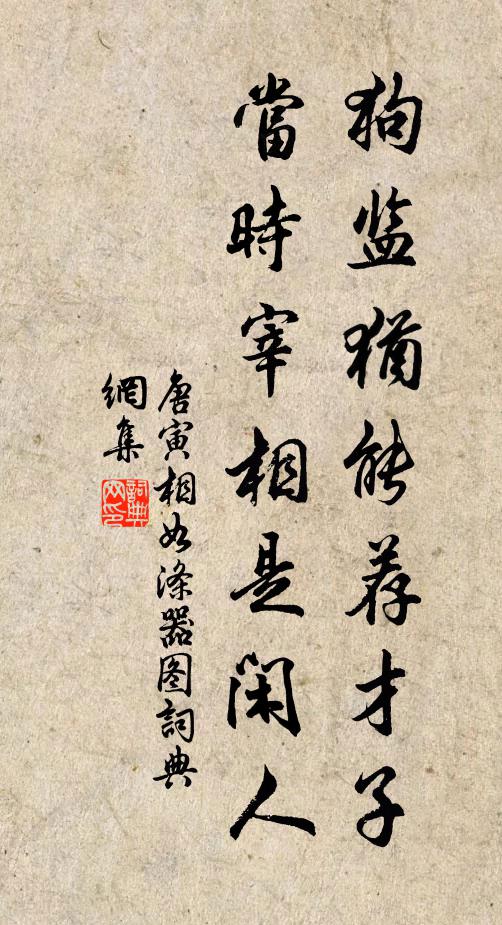 狗监犹能荐才子
當時宰相是閑人
唐寅相如滌器图詞典
網集
詞典
网印